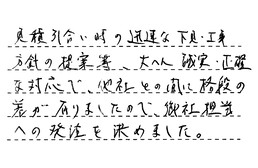 見積引合い時の迅速な下見・工事
方針の提案等、大へん誠実・正確
な対応で、他社との間に格段の
差が有りましたので、御社担当
への発注を決めました。